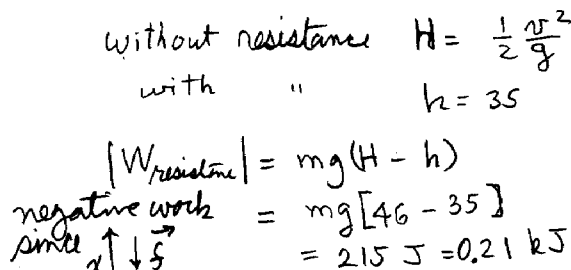 without resistance H = 1/2 v²/g
with " h = 35
|W resistance| = mg(H - h)
negative work = mg[46 - 35]
since ↑↓ f = 215 J = 0.21 kJ